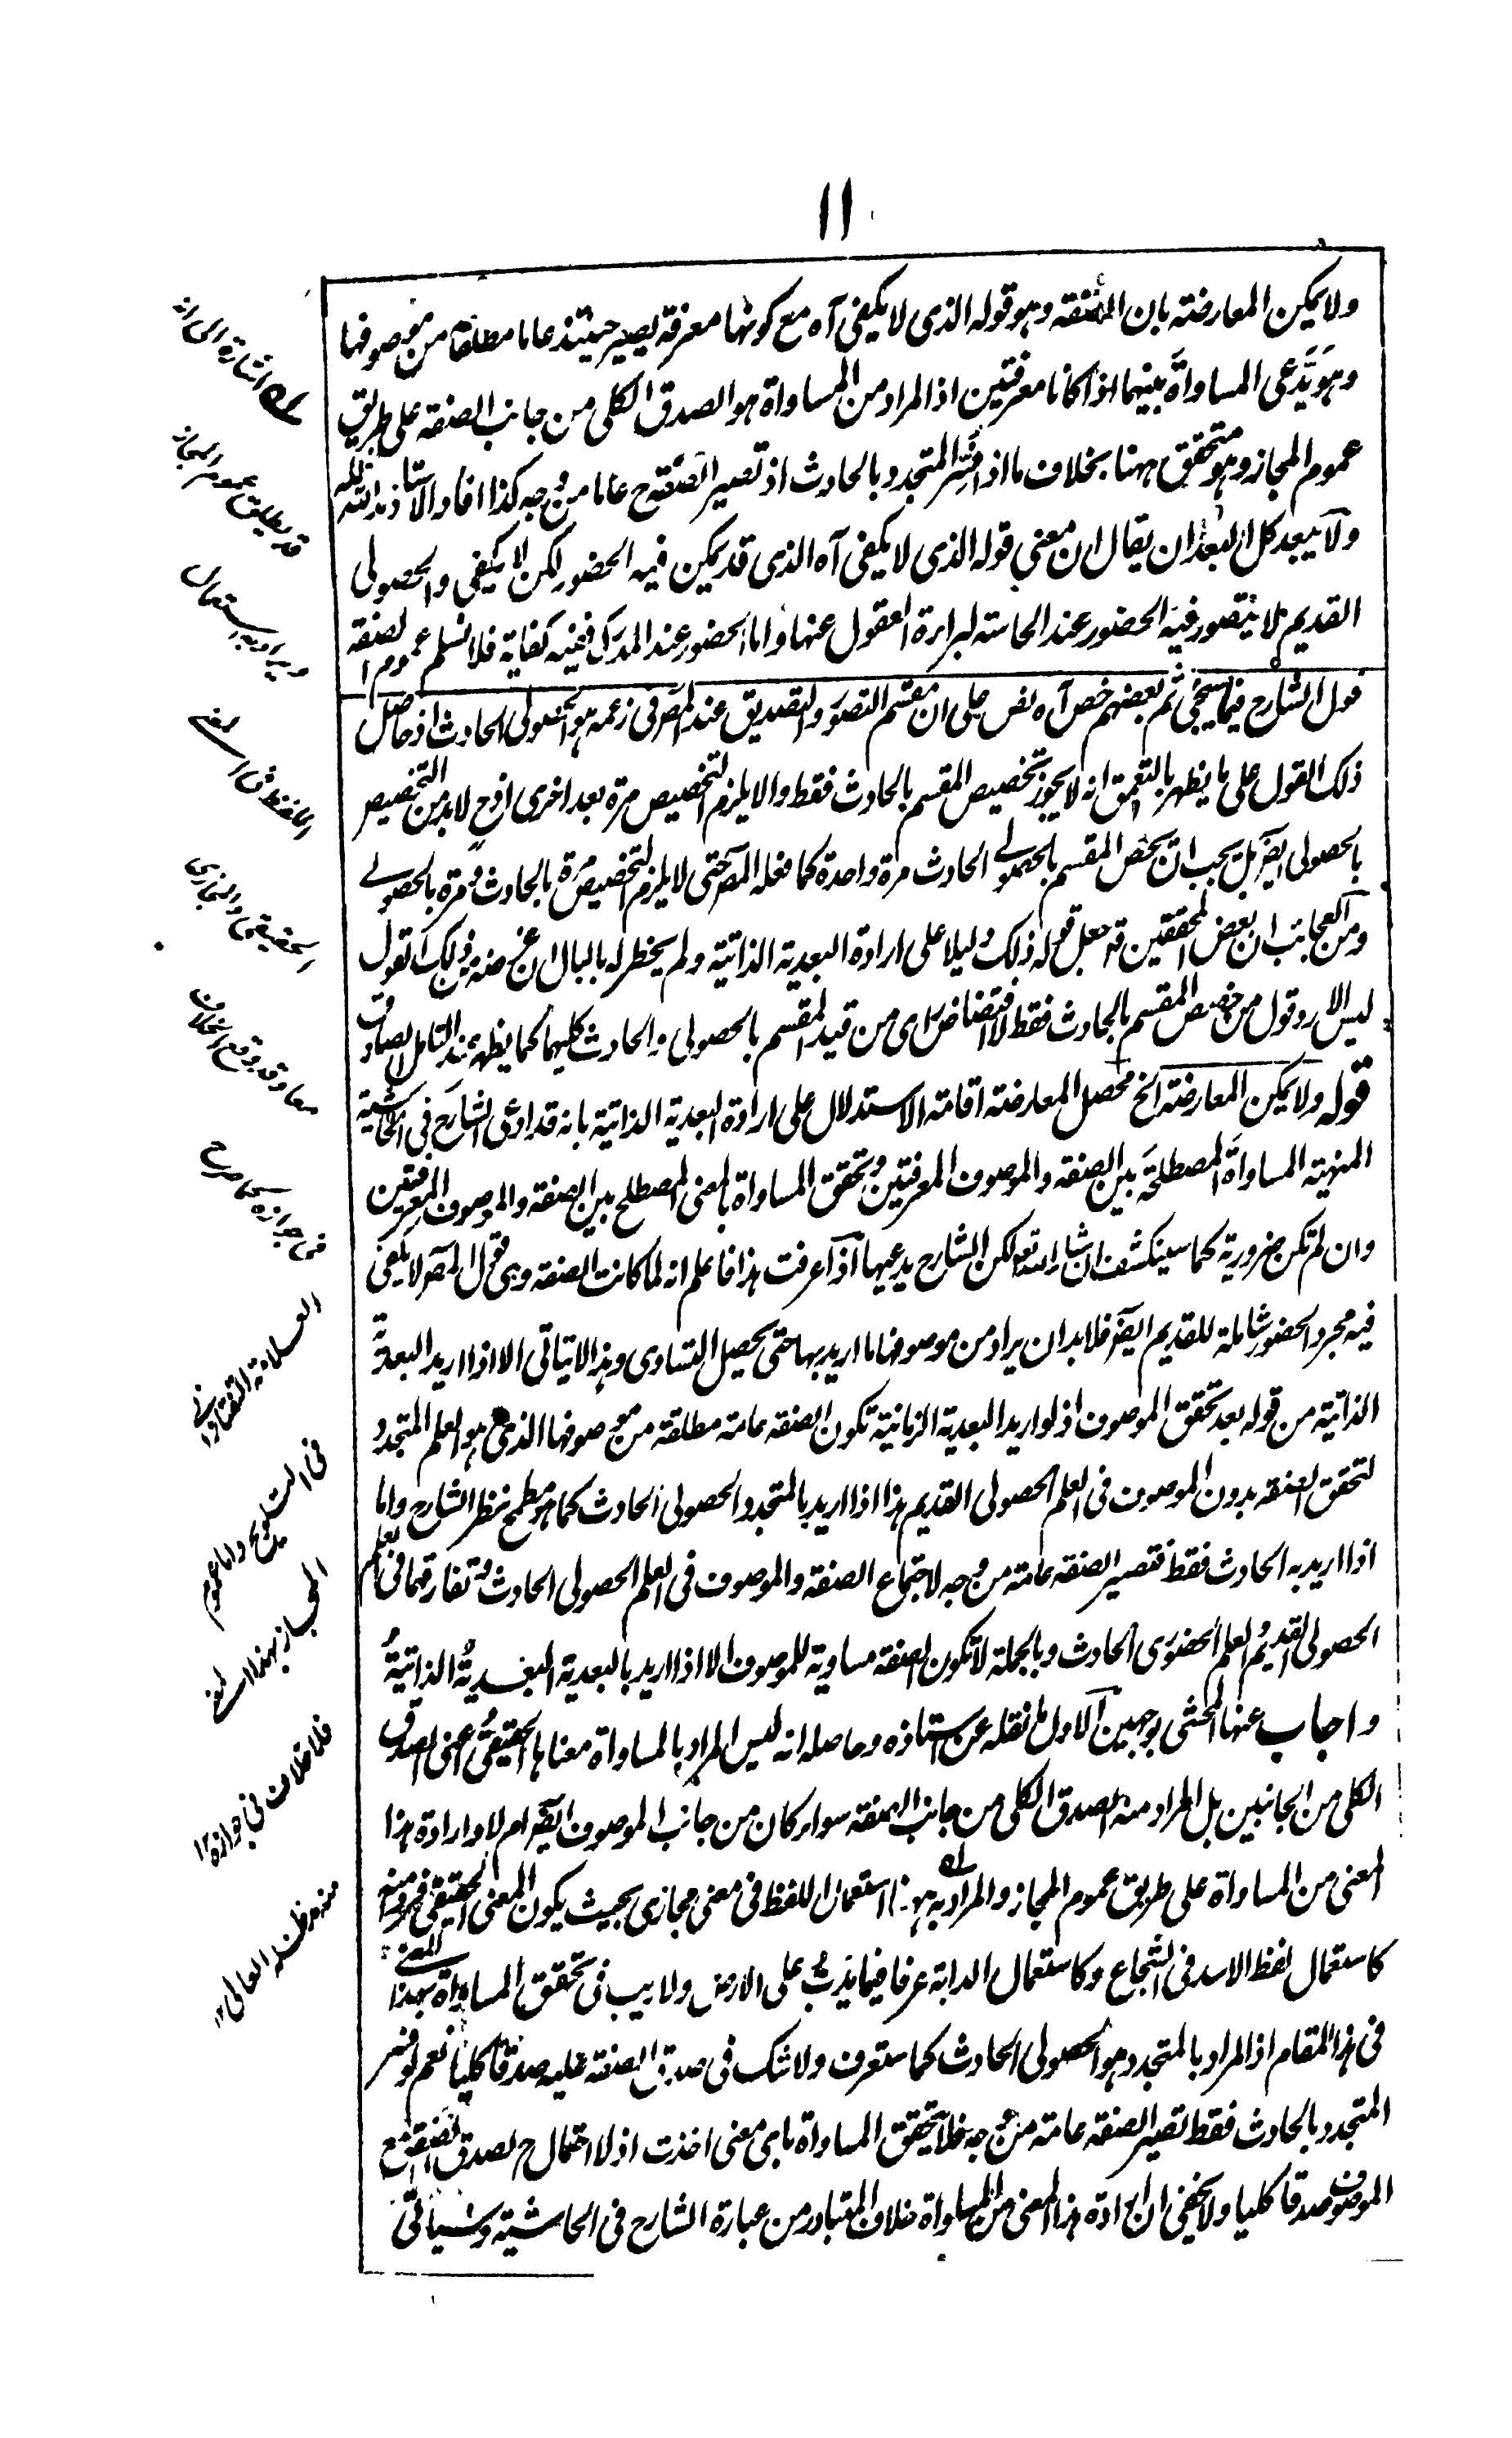 ١١
ولا يمكن المعارضة بان الصفة وهو قوله الذى لا يكفى آه مع كونها معرفة يصير حينئذ عاما مطلقا من موصوفها
وهو يدعى المساواة بينهما اذا كانا معرفتين اذ المراد من المساواة هو الصدق الكلى من جانب الصفة على طريق
عموم المجاز وهو متحقق ههنا بخلاف ما اذا فسّر المتجدد بالحادث اذ تصير الصفة ح عاما من وجه كذا افاد الاستاذ مد ظله
ولا يبعد كل البعد ان يقال ان معنى قوله الذى لا يكفى آه الذى قد يمكن فيه الحضور لكن لا يكفى والحصولى
القديم لا يتصور فيه الحضور عند الحاسة لبراءة العقول عنها واما الحضور عند المدرك ففيه كفاية فلا نسلم عموم الصفة
قول الشارح فيما سيجئ ثم بعضهم خص آه نص على ان مقسم التصور والتصديق عند المص فى زعمه هو الحصولى الحادث اذ حاصل
ذلك القول على ما يظهر بالتعمق انه لا يجوز تخصيص المقسم بالحادث فقط والا يلزم التخصيص مرة بعد اخرى اذ ح لا بد من التخصيص
بالحصولى ايضا بل يجب ان يخص المقسم بالحصولى الحادث مرة واحدة كما فعله المص حتى لا يلزم التخصيص مرة بالحادث ومرة بالحصولى
ومن العجائب ان بعض المحققين قد جعل قوله ذلك دليلا على ارادة البعدية الذاتية ولم يخطر له بالبال ان غرضه فى ذلك القول
ليس الا رد قول من خصص المقسم بالحادث فقط لا اقتضاض راى من قيد المقسم بالحصولى والحادث كليهما كما يظهر عند التامل الصادق
قوله ولا يمكن المعارضة الخ محصل المعارضة اقامة الاستدلال على ارادة البعدية الذاتية بانه قد ادعى الشارح فى الحاشية
المنهية المساواة المصطلحة بين الصفة والموصوف المعرفتين وتحقق المساواة بالمعنى المصطلح بين الصفة والموصوف المعرفتين
وان لم تكن ضرورية كما سينكشف ان شاء الله تعالى لكن الشارح يدعيها اذا عرفت هذا فاعلم انه لما كانت الصفة وهى قول المص لا يكفى
فيه مجرد الحضور شاملة للقديم ايضا فلا بد ان يراد من موصوفها ما اريد بها حتى يحصل التساوى وهذا لا يتاتى الا اذا اريد البعدية
الذاتية من قوله بعد تحقق الموصوف اذ لو اريد البعدية الزمانية تكون الصفة عامة مطلقة من موصوفها الذى هو العلم المتجدد
لتحقق الصفة بدون الموصوف فى العلم الحصولى القديم هذا اذا اريد بالمتجدد الحصولى الحادث كما هو مطمح نظر الشارح واما
اذا اريد به الحادث فقط فتصير الصفة عامة من وجه لاجتماع الصفة والموصوف فى العلم الحصولى الحادث وتفارقهما فى العلم
الحصولى القديم والعلم الحضورى الحادث وبالجملة لا تكون الصفة مساوية للموصوف الا اذا اريد بالبعدية البعدية الذاتية
واجاب عنها المحشى بوجهين الاول ما نقله عن استاذه وحاصله انه ليس المراد بالمساواة معناها الحقيقى اعنى الصدق
الكلى من الجانبين بل المراد منه الصدق الكلى من جانب الصفة سواء كان من جانب الموصوف ايضا ام لا وارادة هذا
المعنى من المساواة على طريق عموم المجاز والمراد به ههنا استعمال اللفظ فى معنى مجازى بحيث يكون المعنى الحقيقى فردا منه
كاستعمال لفظ الاسد فى الشجاع وكاستعمال الدابة عرفا فيما يدب على الارض ولا ريب فى تحقق المساواة بهذا المعنى
فى هذا المقام اذ المراد بالمتجدد هو الحصولى الحادث كما ستعرف ولا شك فى صدق الصفة عليه صدقا كليا نعم لو فسر
المتجدد بالحادث فقط تصير الصفة عامة من وجه فلا يتحقق المساواة باى معنى اخذت اذ لا احتمال ح لصدق الصفة مع
الموصوف صدقا كليا ولا يخفى ان ارادة هذا المعنى من المساواة خلاف المتبادر من عبارة الشارح فى الحاشية وسياتى
له اشارة الى انه
قد يطلق عموم المجاز
ويراد به استعمال
اللفظ فى المعنى
الحقيقى والمجازى
معا وقد وقع الخلاف
فى جوازه كما صرح
العلامة التفتازانى
فى التلويح واما عموم
المجاز بهذا المعنى
فلا خلاف فى جوازه ١٢
منه مد ظله العالى